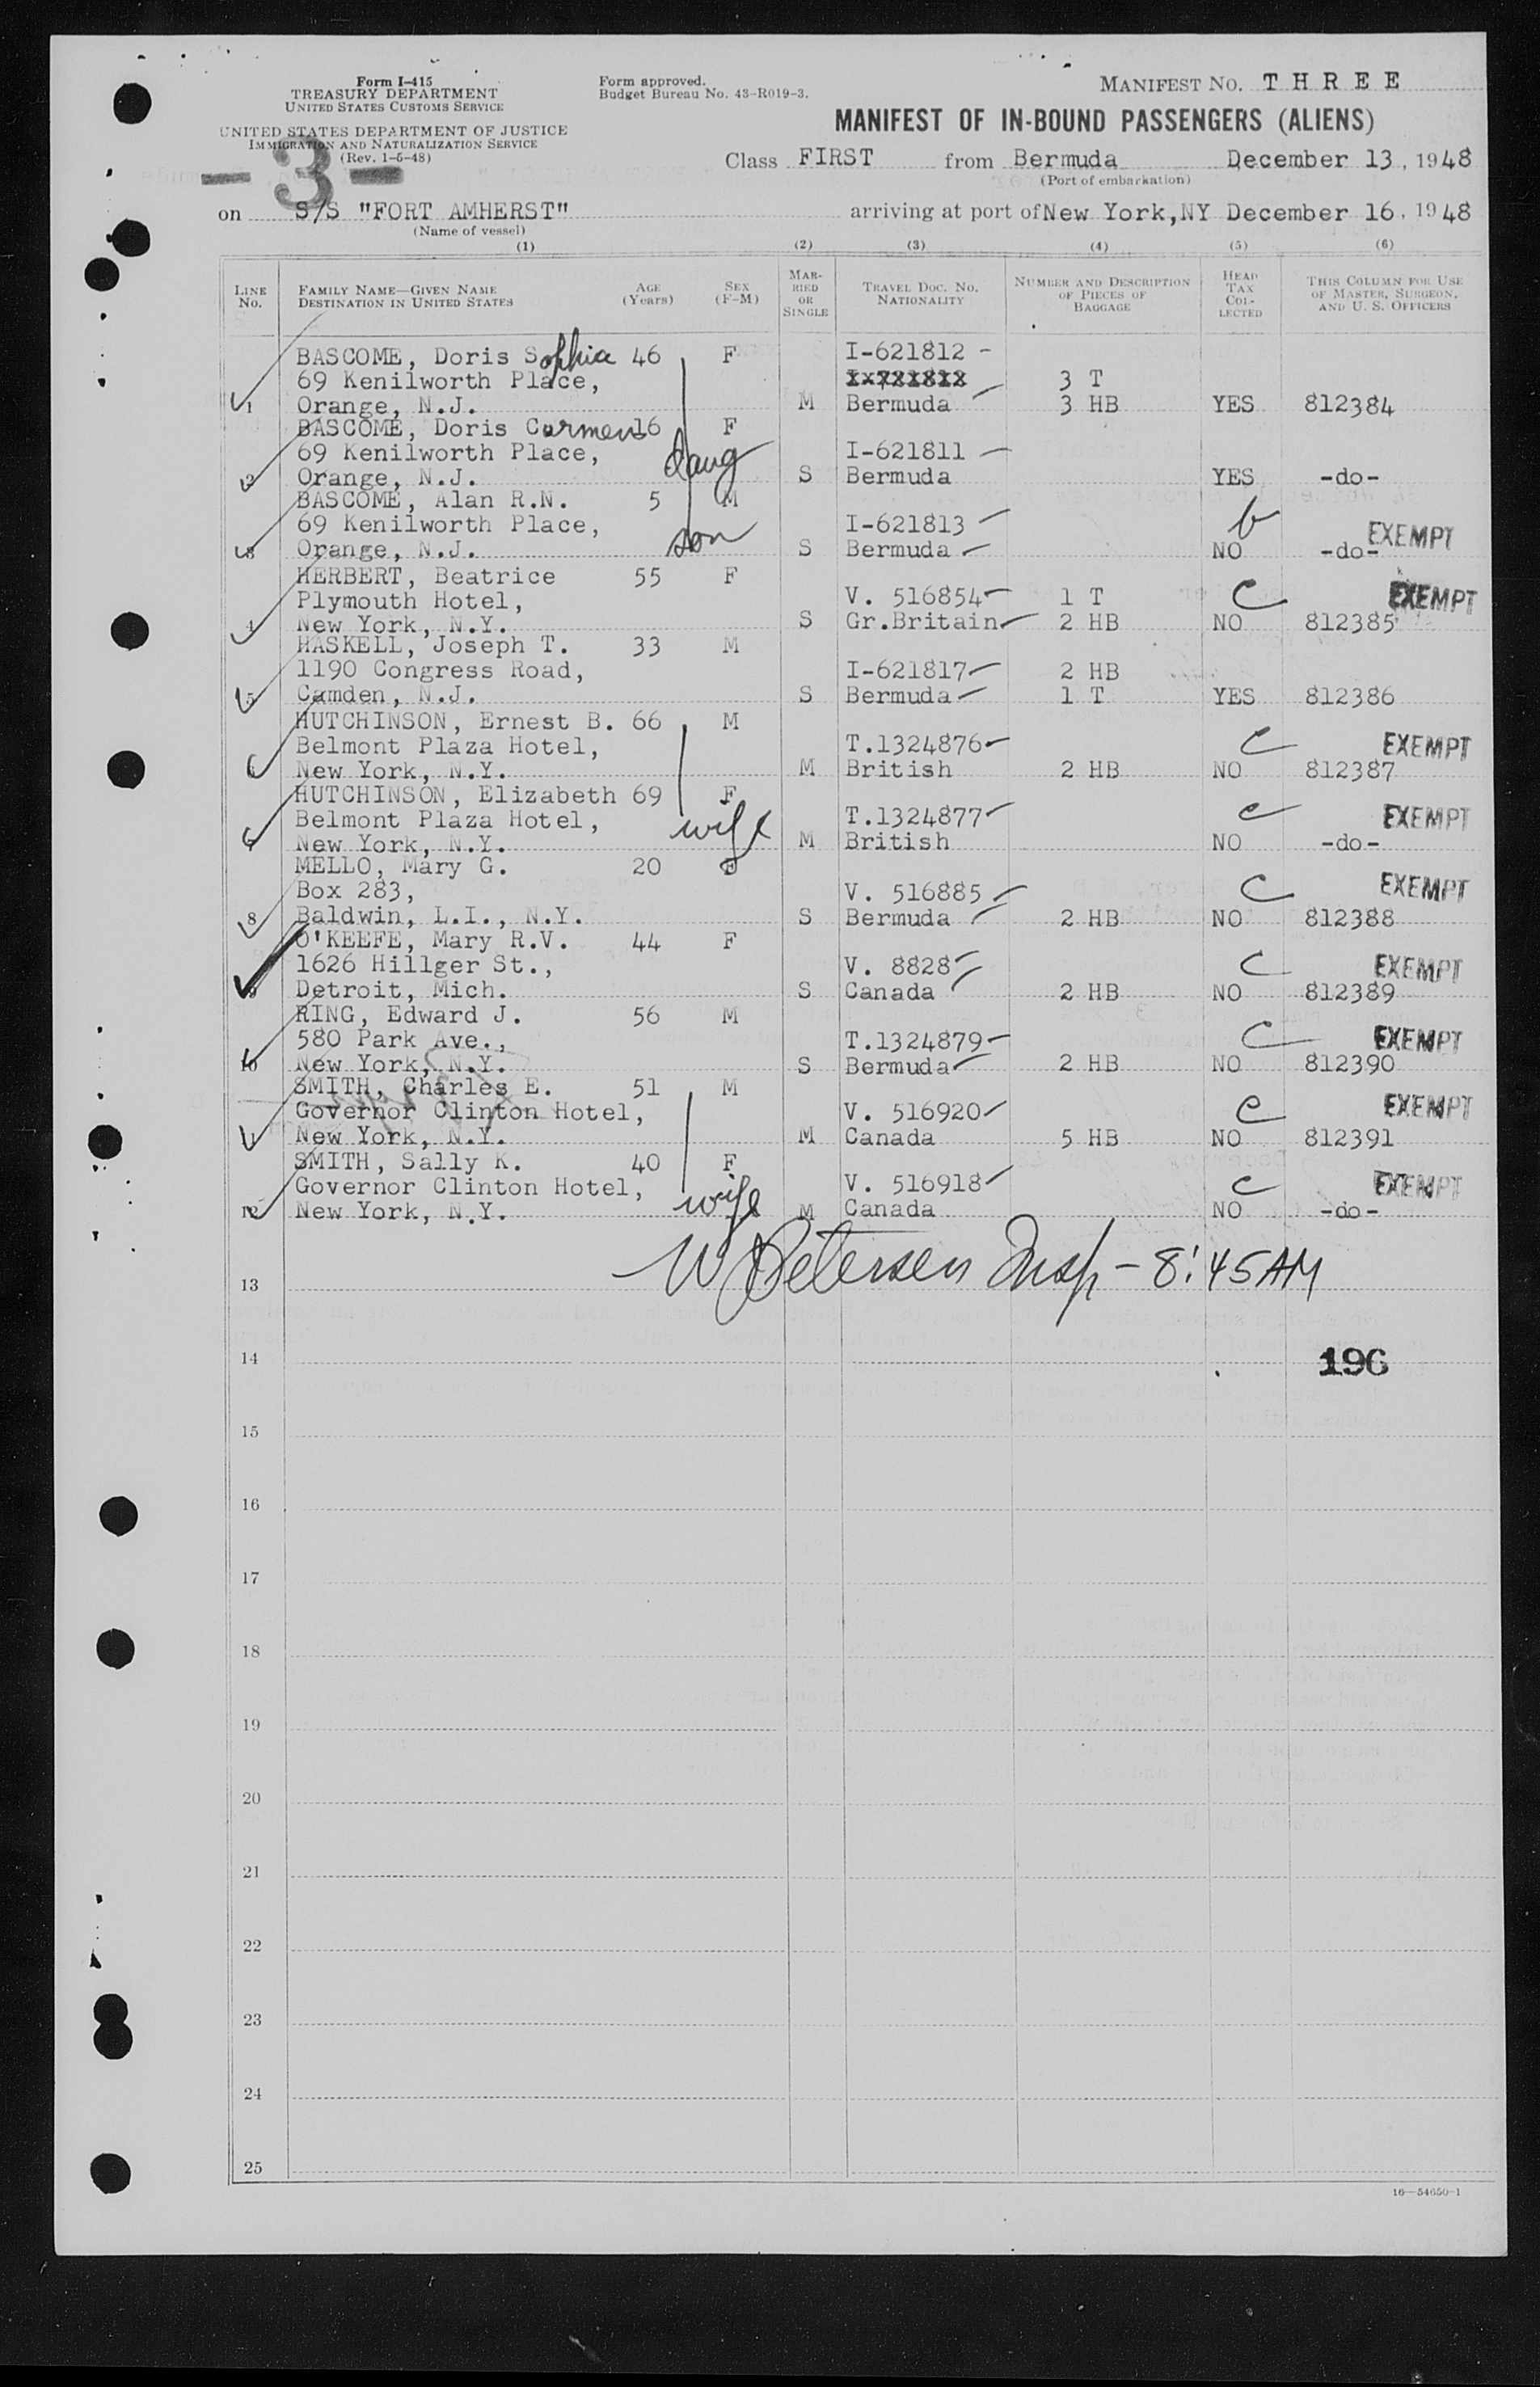 Form I-415
TREASURY DEPARTMENT
UNITED STATES CUSTOMS SERVICE
UNITED STATES DEPARTMENT OF JUSTICE
IMMIGRATION AND NATURALIZATION SERVICE
(Rev. 1-5-48)
- 3 -
Form approved.
Budget Bureau No. 43-R019-3.
MANIFEST NO. T H R E E
MANIFEST OF IN-BOUND PASSENGERS (ALIENS)
Class FIRST from Bermuda December 13, 1948
(Port of embarkation)
on S/S "FORT AMHERST" arriving at port of New York,NY December 16, 1948
(Name of vessel)
(1) (2) (3) (4) (5) (6)
LINE No. FAMILY NAME—GIVEN NAME DESTINATION IN UNITED STATES AGE (Years) SEX (F-M) MARRIED OR SINGLE TRAVEL DOC. NO. NATIONALITY NUMBER AND DESCRIPTION OF PIECES OF BAGGAGE HEAD TAX COLLECTED THIS COLUMN FOR USE OF MASTER, SURGEON, AND U. S. OFFICERS
BASCOME, Doris Sophia 46 F I-621812 -
69 Kenilworth Place, 3 T
1 Orange, N.J. M Bermuda 3 HB YES 812384
BASCOME, Doris Carmen 16 F
69 Kenilworth Place, daug I-621811
2 Orange, N.J. S Bermuda YES -do-
BASCOME, Alan R.N. 5 M
69 Kenilworth Place, son I-621813 b EXEMPT
3 Orange, N.J. S Bermuda NO -do-
HERBERT, Beatrice 55 F
Plymouth Hotel, V. 516854 1 T C EXEMPT
4 New York, N.Y. S Gr.Britain 2 HB NO 812385
HASKELL, Joseph T. 33 M
1190 Congress Road, I-621817 2 HB
5 Camden, N.J. S Bermuda 1 T YES 812386
HUTCHINSON, Ernest B. 66 M
Belmont Plaza Hotel, T.1324876 C EXEMPT
6 New York, N.Y. M British 2 HB NO 812387
HUTCHINSON, Elizabeth 69 F
Belmont Plaza Hotel, wife T.1324877 C EXEMPT
7 New York, N.Y. M British NO -do-
MELLO, Mary G. 20 F
Box 283, V. 516885 C EXEMPT
8 Baldwin, L.I., N.Y. S Bermuda 2 HB NO 812388
O'KEEFE, Mary R.V. 44 F
1626 Hillger St., V. 8828 C EXEMPT
9 Detroit, Mich. S Canada 2 HB NO 812389
RING, Edward J. 56 M
580 Park Ave., T.1324879 C EXEMPT
10 New York, N.Y. S Bermuda 2 HB NO 812390
SMITH, Charles E. 51 M
Governor Clinton Hotel, V. 516920 C EXEMPT
11 New York, N.Y. M Canada 5 HB NO 812391
SMITH, Sally K. 40 F
Governor Clinton Hotel, V. 516918 C EXEMPT
12 New York, N.Y. wife M Canada NO -do-
W Petersen Insp - 8:45 AM
13
14 196
15
16
17
18
19
20
21
22
23
24
25
16—54650-1